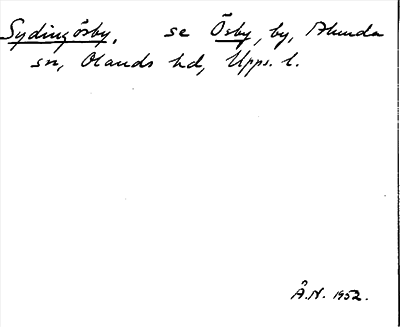 Sydingösby, se Ösby, by, Alunda
sn, Olands hd, Upps. l.
Å.N. 1952.